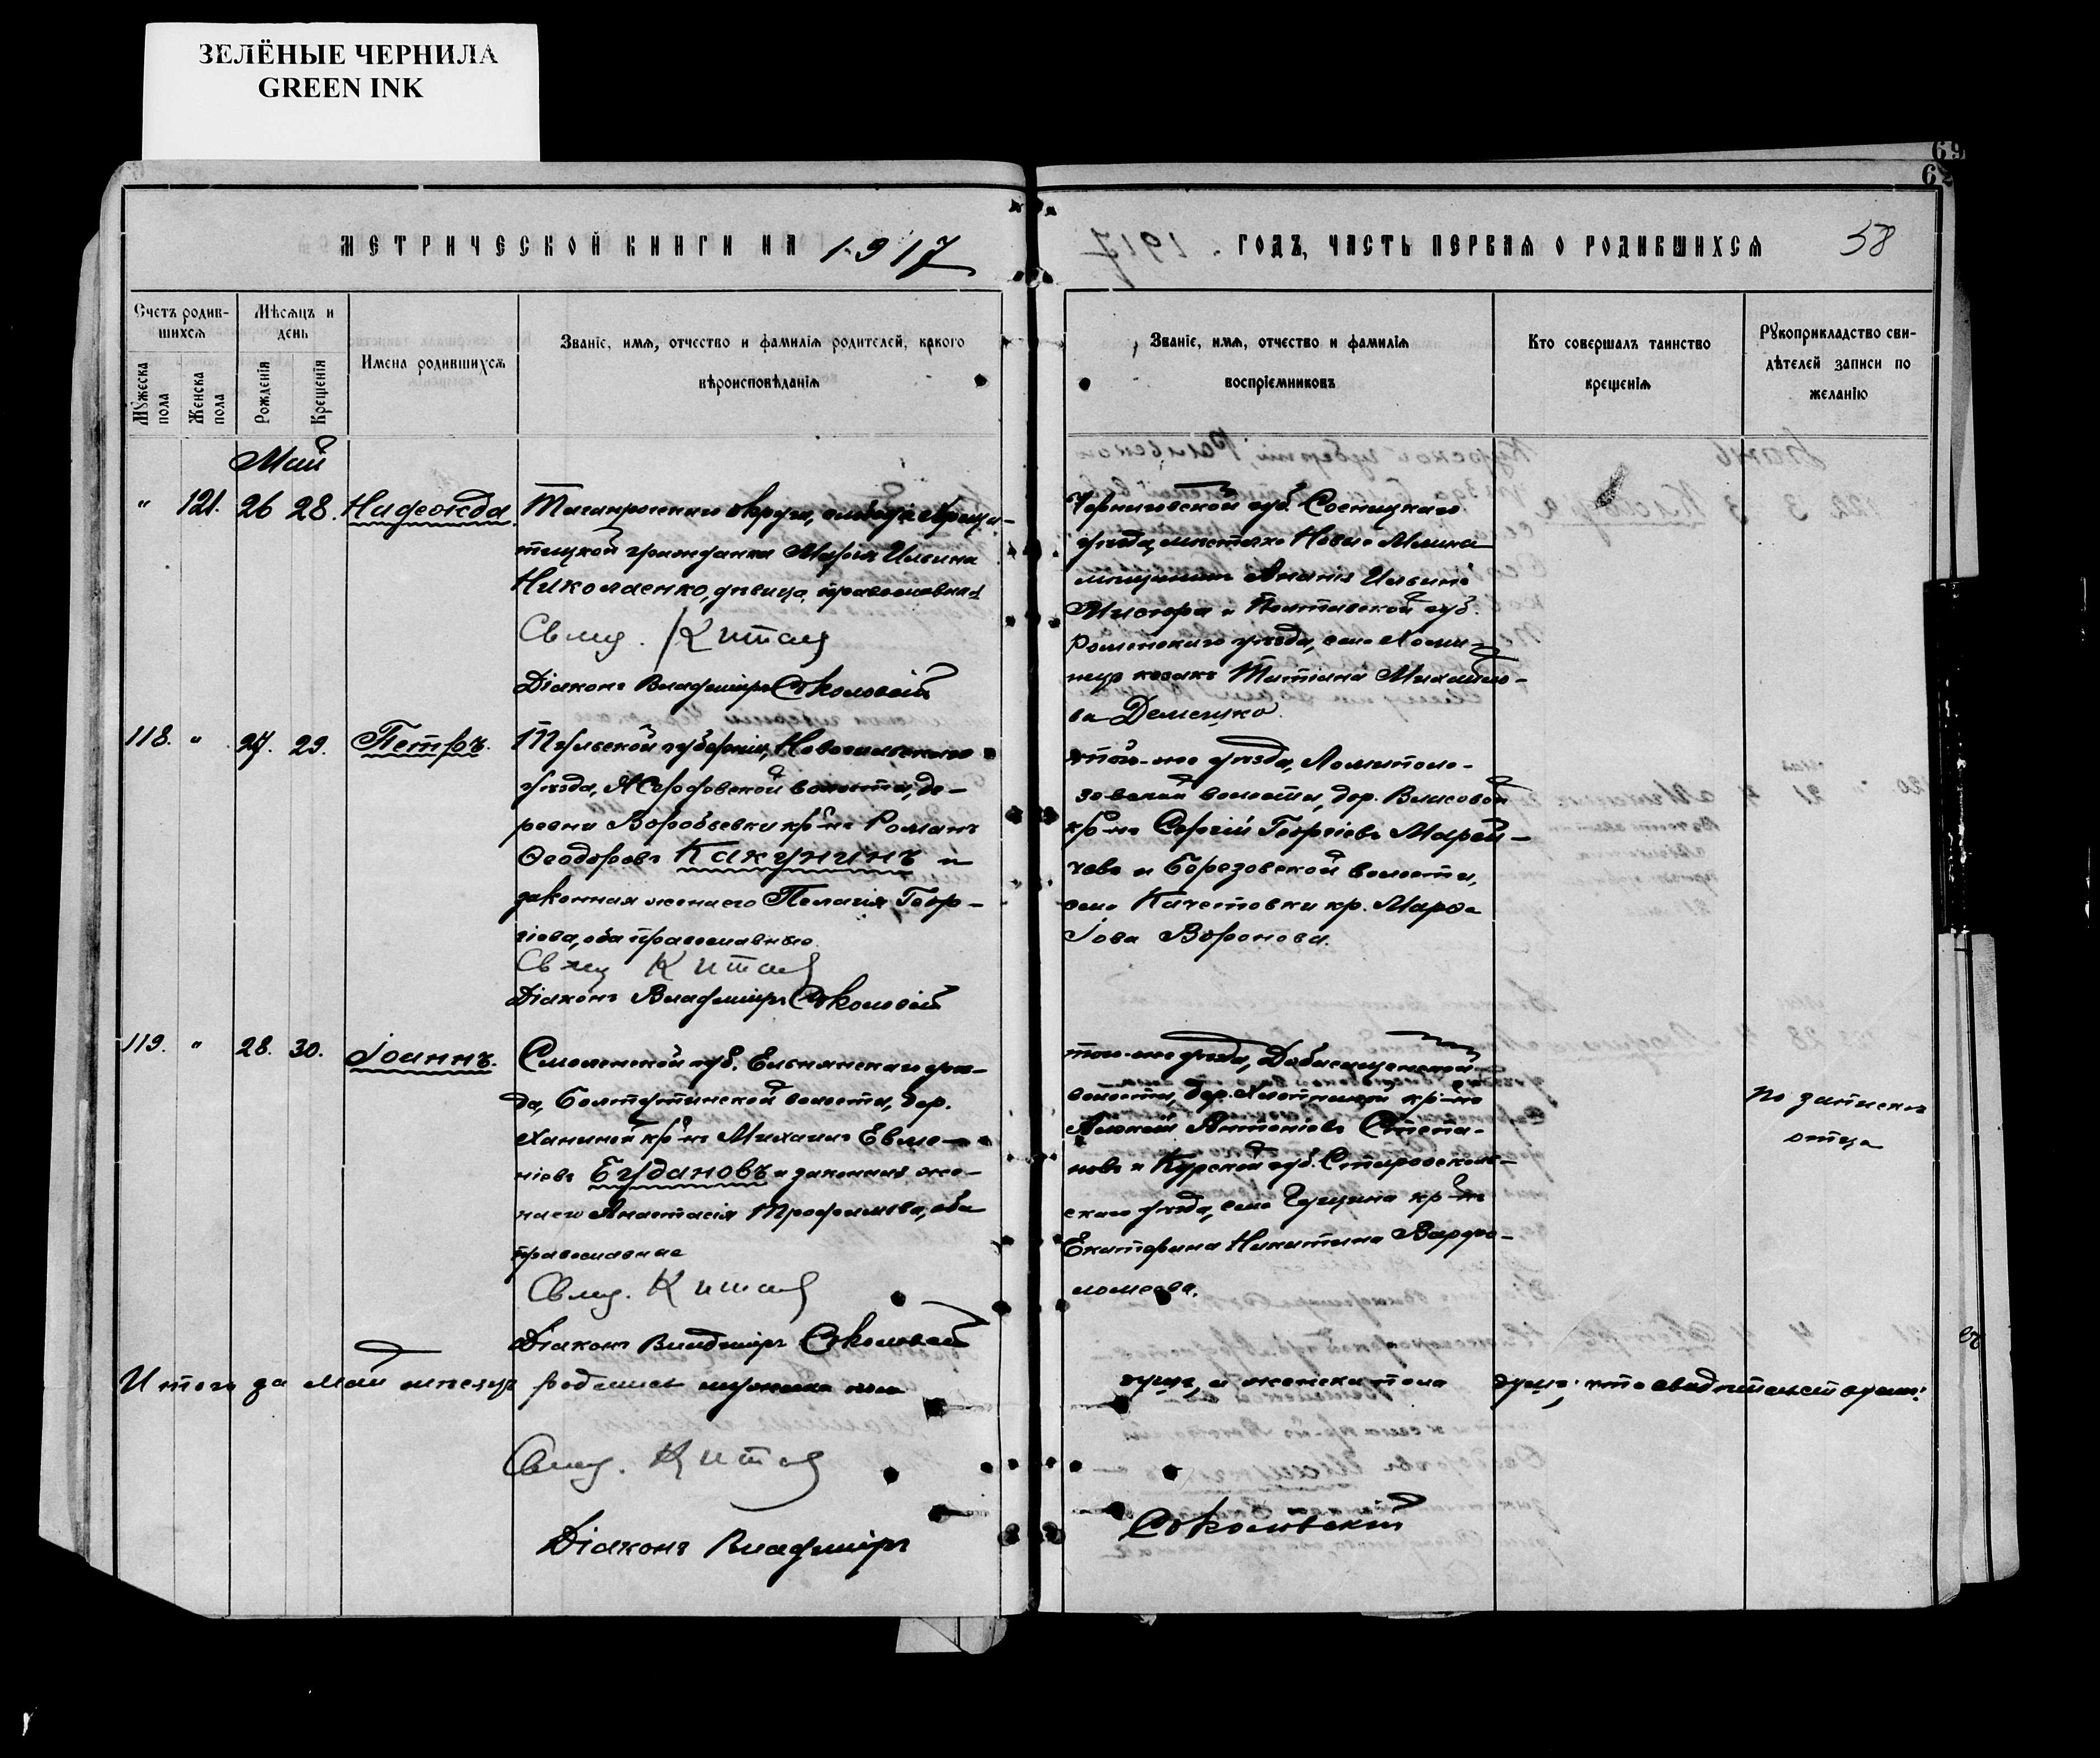 ЗЕЛЁНЫЕ ЧЕРНИЛА
GREEN INK
69
62
МЕТРИЧЕСКОЙ КНИГИ НА 1917
ГОДЪ, ЧАСТЬ ПЕРВАЯ О РОДИВШИХСЯ
58
Счетъ родив-
шихся
Мужеска пола
Женска пола
Мѣсяцъ и
день
Рожденія
Крещенія
Имена родившихся
Званіе, имя, отчество и фамилія родителей, какого
вѣроисповѣданія
Званіе, имя, отчество и фамилія
воспріемниковъ
Кто совершалъ таинство
крещенія
Рукоприкладство сви-
дѣтелей записи по
желанію
Май
" 121. 26 28. Надежда
Таганрогскаго округа, слободы
гражданка Марія Ильина
Николаенко, дѣвица, православная
Свящ. Китай
Діаконъ Владиміръ Соколовскій
Черниговской губ. Сосницкаго
уѣзда, мѣстечка Новые Млины
мѣщанинъ Ананія Ильинъ
и Полтавской губ.
Роменскаго уѣзда, села
козачка Татіана Михайло-
ва
118. " 27. 29. Петръ.
Тульской губерніи, Новосильскаго
уѣзда, волости, де-
ревни Воробьевки кр-нъ Романъ
Ѳеодоровъ Какунинъ и
законная жена его Пелагія Геор-
гіева, оба православные.
Свящ Китай
Діаконъ Владиміръ Соколовскій
того-же уѣзда,
волости, дер. Власовой
кр-нъ Сергій Георгіевъ
и Березовской волости,
села кр. Марѳа
Іова Воронова.
119. " 28. 30. Іоаннъ.
Смоленской губ. Ельнинскаго уѣз-
да, Болтутинской волости, дер.
Ханиной кр-нъ Михаилъ Евме-
ніевъ Егудановъ и законная же-
на его Анастасія Трофимова, оба
православные
Свящ. Китай
Діаконъ Владиміръ Соколовскій
того-же уѣзда,
волости, дер. кр-нъ
Алексѣй Антоніевъ Степа-
новъ и Курской губ. Старооскол-
скаго уѣзда, села кр-ка
Екатерина Никитина Варфо-
ломеева.
по запискѣ
отца
Итого за май мѣсяцъ родилось мужеска пола
душъ, и женска пола
душъ; что свидѣтельствуемъ:
Свящ. Китай
Діаконъ Владиміръ
Соколовскій